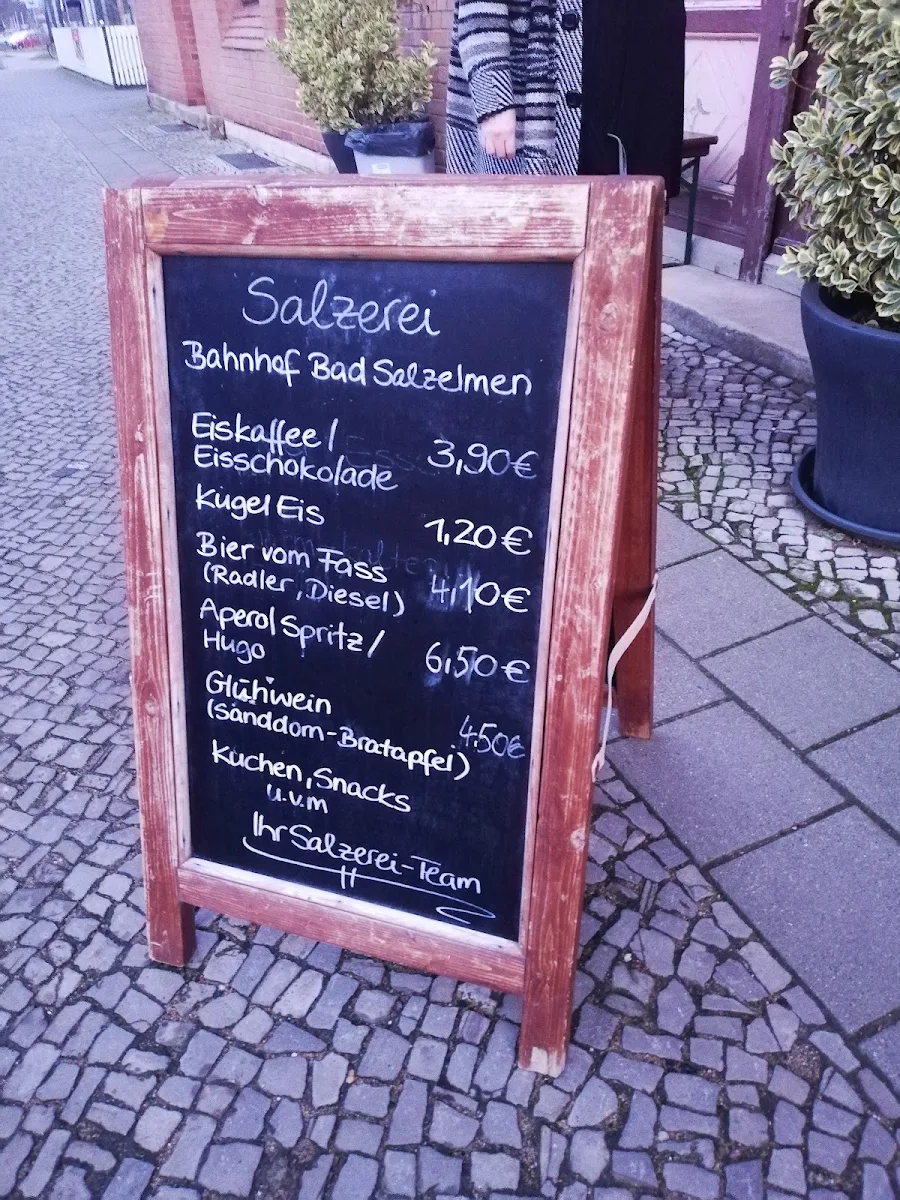 Salzerei
Bahnhof Bad Salzelmen
Eiskaffee/
Eisschokolade 3,90€
Kugel Eis 1,20€
Bier vom Fass
(Radler, Diesel) 4,10€
Aperol Spritz/
Hugo 6,50€
Glühwein
(Sanddorn-Bratapfel) 4.50€
Kuchen, Snacks
u.v.m
Ihr Salzerei-Team